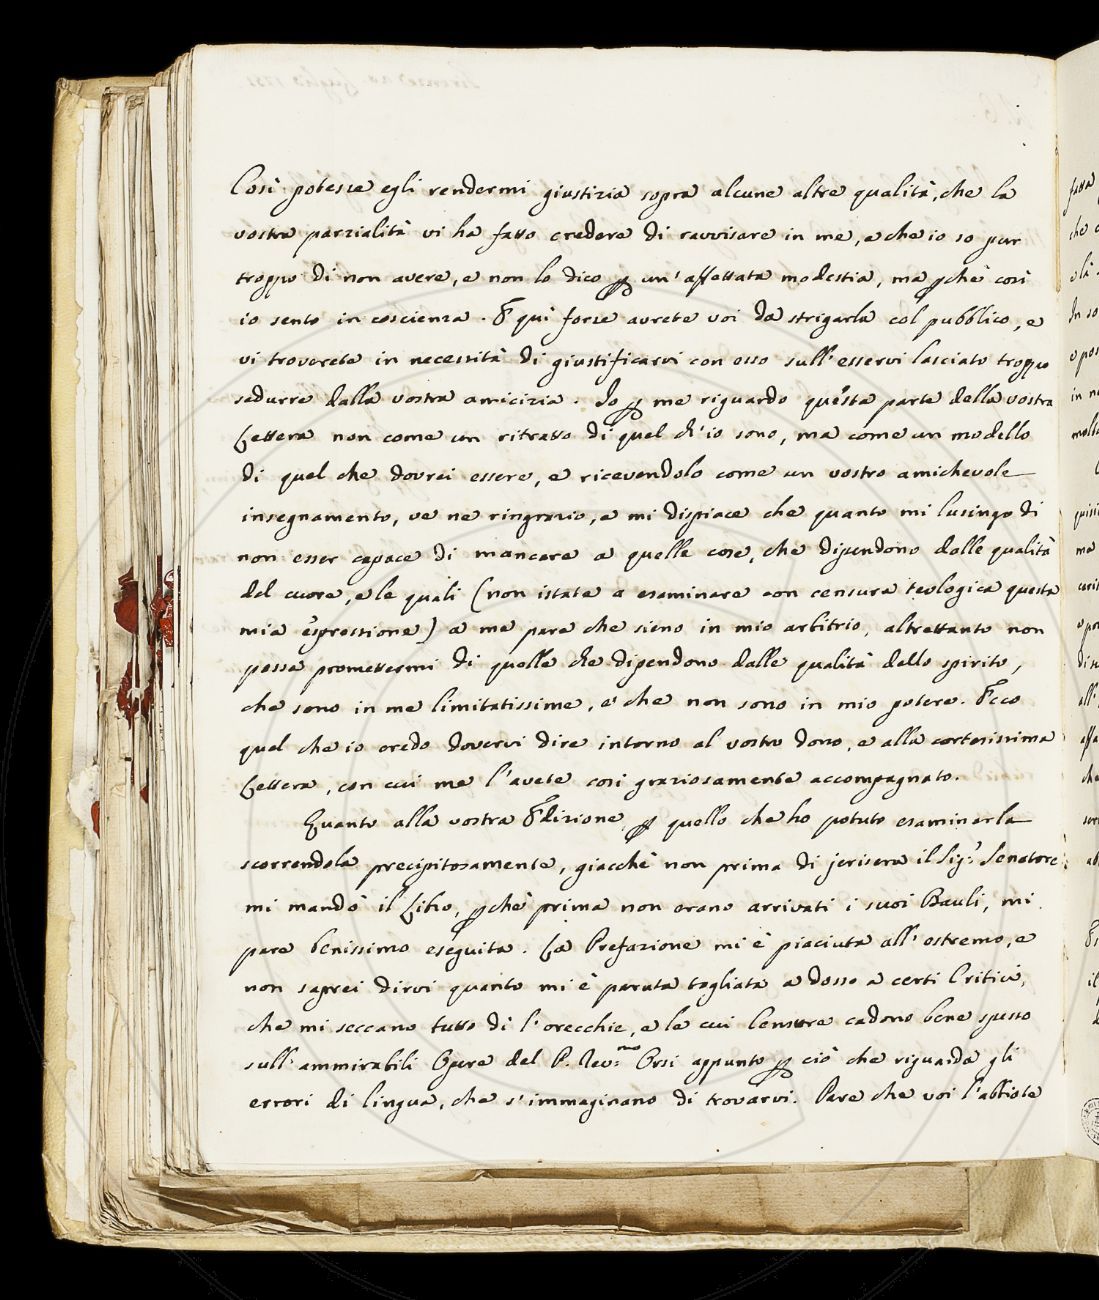 Così potesse egli rendermi giustizia sopra alcune altre qualità, che la
vostra parzialità vi ha fatto credere di ravvisare in me, e che io so pur
troppo di non avere, e non lo dico p un' affettata modestia, ma pchè così
io sento in coscienza. E quì forse avrete voi da strigarla col pubblico, e
vi troverete in necessità di giustificarvi con esso sull' esservi lasciato troppo
sedurre dalla vostra amicizia. Io p me riguardo questa parte della vostra
Lettera non come un ritratto di quel ch'io sono, ma come un modello
di quel che dovrei essere, e ricevendolo come un vostro amichevole
insegnamento, ve ne ringrazio, e mi dispiace che quanto mi lusingo di
non esser capace di mancare a quelle cose, che dipendono dalle qualità
del cuore, e le quali (non istate a esaminare con censura teologica questa
mia espressione) a me pare che sieno in mio arbitrio, altrettanto non
possa promettermi di quelle che dipendono dalle qualità dello spirito,
che sono in me limitatissime, e che non sono in mio potere. Ecco
quel che io credo dovervi dire intorno al vostro dono, e alla cortesissima
Lettera, con cui me l'avete così graziosamente accompagnato.
Quanto alla vostra Edizione, p quello che ho potuto esaminarla
scorrendola precipitosamente, giacchè non prima di jerisera il Sig.r Senatore
mi mandò il Libro, pchè prima non erano arrivati i suoi Bauli, mi
pare benissimo eseguita. La Prefazione mi è piaciuta all' estremo, e
non saprei dirvi quanto mi è paruta tagliata a dosso a certi Critici,
che mi seccano tutto dì l'orecchie, e le cui Censure cadono bene spesso
sull' ammirabili Opere del P. Rev.mo Orsi appunto p ciò che riguarda gli
errori di lingua, che s'immaginano di trovarvi. Pare che voi l'abbiate